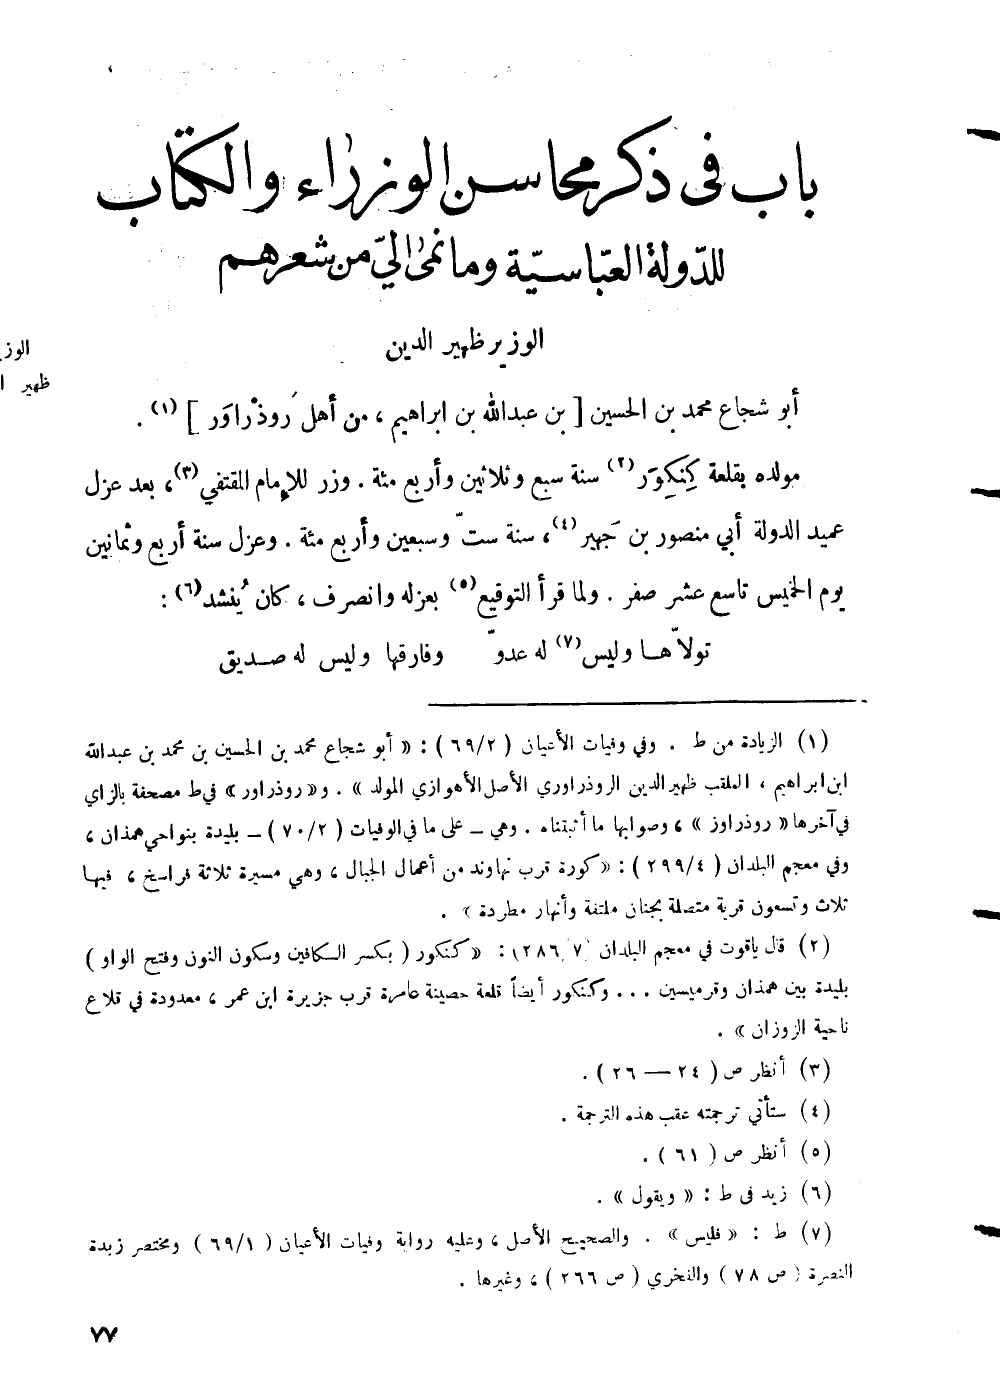 باب في ذكر محاسن الوزراء والكتّاب
للدّولة العبّاسيّة وما نمى إليّ من شعرهم
الوزير ظهير الدين
الوز
ظهير ا
أبو شجاع محمد بن الحسين [ بن عبدالله بن ابراهيم ، من أهل رُوذْراوَر ] (١) .
مولده بقلعة كِنكِوَر (٢) سنة سبع وثلاثين وأربع مئة . وزر للإمام المقتفي (٣) ، بعد عزل
عميد الدولة أبي منصور بن جَهير (٤) ، سنة ستّ وسبعين وأربع مئة . وعزل سنة أربع وثمانين
يوم الخميس تاسع عشر صفر . ولما قرأ التوقيع (٥) بعزله وانصرف ، كان يُنشد (٦) :
تولاّها وليس (٧) له عدوّ وفارقها وليس له صديق
(١) الزيادة من ط . وفي وفيات الأعيان ( ٦٩/٢ ) : « أبو شجاع محمد بن الحسين بن محمد بن عبدالله
ابن ابراهيم ، الملقب ظهير الدين الروذراوري الأصل الأهوازي المولد » . و« روذراور » في ط مصحفة بالزاي
في آخرها « روذراوز » ، وصوابها ما أثبتناه . وهي – على ما في الوفيات ( ٧٠/٢ ) – بليدة بنواحي همذان ،
وفي معجم البلدان ( ٢٩٩/٤ ) : « كورة قرب نهاوند من أعمال الجبال ، وهي مسيرة ثلاثة فراسخ ، فيها
ثلاث وتسعون قرية متصلة بجنان ملتفة وأنهار مطردة » .
(٢) قال ياقوت في معجم البلدان ( ٧/٢٨٦ ) : « كنكور ( بكسر الكافين وسكون النون وفتح الواو )
بليدة بين همذان وقرميسين ... وكنكور أيضاً قلعة حصينة عامرة قرب جزيرة ابن عمر ، معدودة في قلاع
ناحية الزوزان » .
(٣) أنظر ص ( ٢٤ — ٢٦ ) .
(٤) ستأتي ترجمته عقب هذه الترجمة .
(٥) أنظر ص ( ٦١ ) .
(٦) زيد في ط : « ويقول » .
(٧) ط : « فليس » . والصحيح الأصل ، وعليه رواية وفيات الأعيان ( ٦٩/١ ) ومختصر زبدة
النصرة ( ص ٧٨ ) والفخري ( ص ٢٦٦ ) ، وغيرها .
٧٧